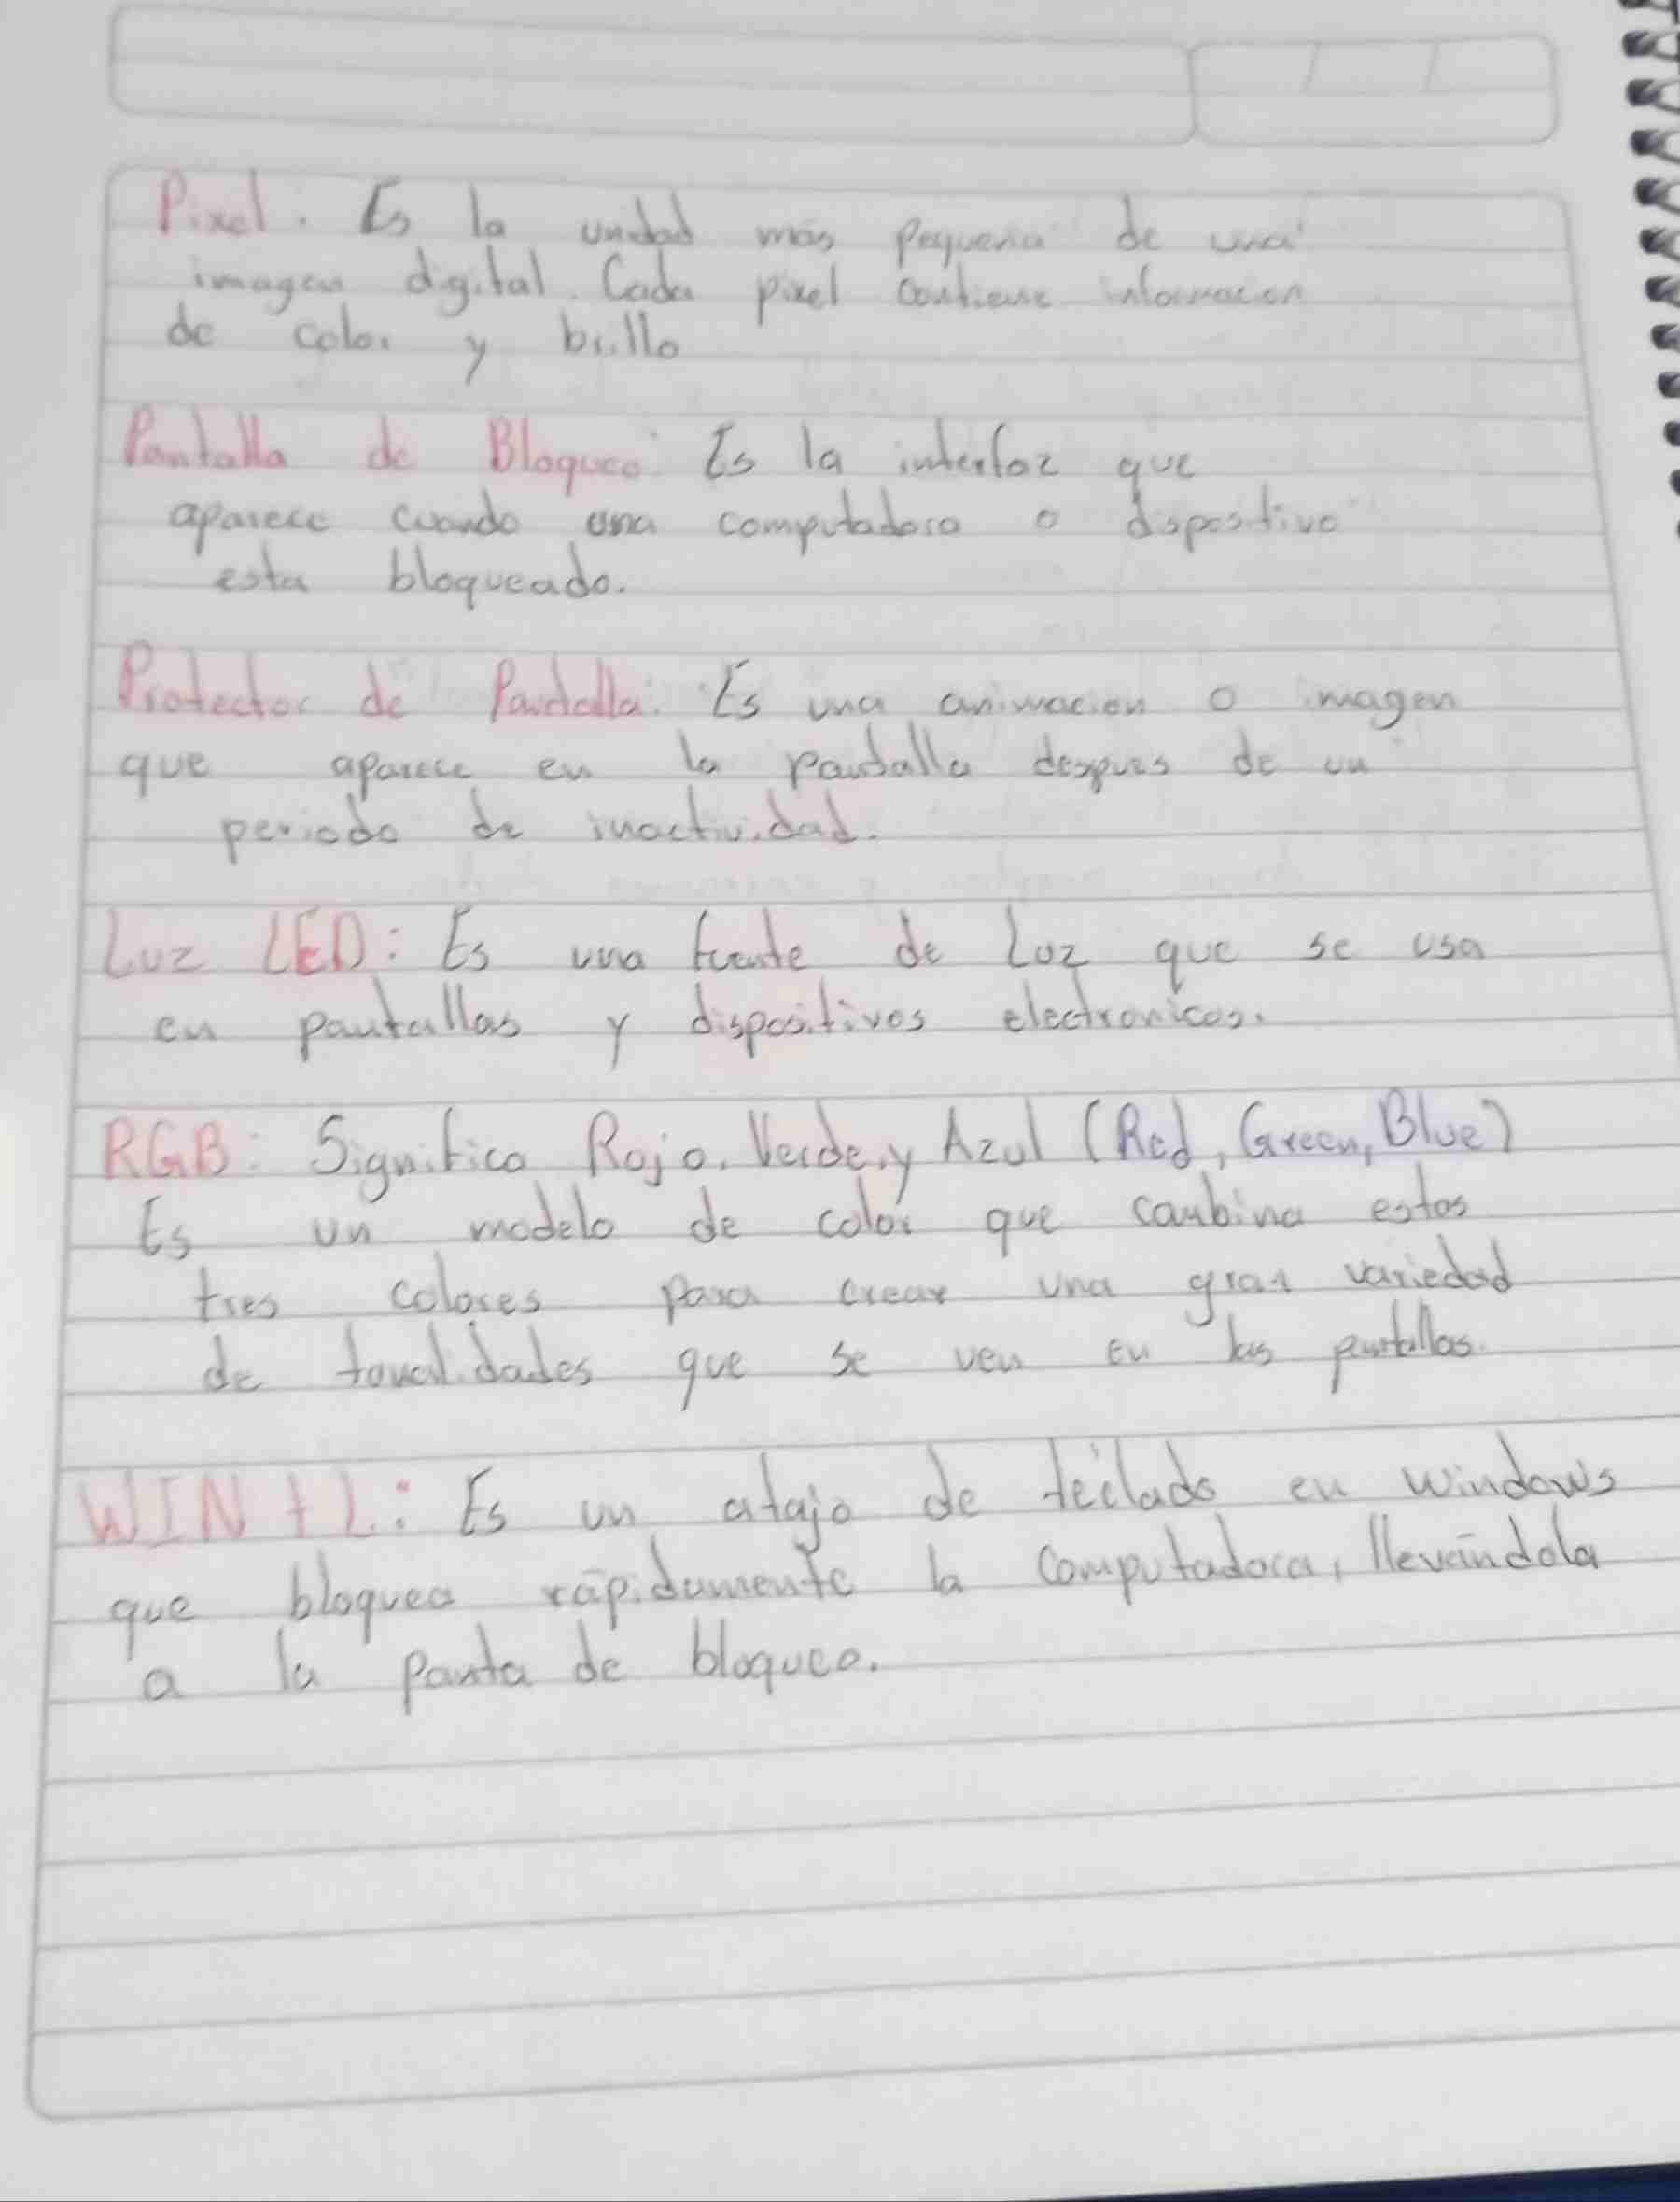 Pixel: Es la unidad más pequeña de una
imagen digital. Cada pixel contiene informacion
de color y brillo
Pantalla de Bloqueo: Es la interfaz que
aparece cuando una computadora o dispositivo
esta bloqueado.
Protector de Pantalla: Es una animacion o imagen
que aparece en la pantalla despues de un
periodo de inactividad.
Luz LED: Es una fuente de Luz que se usa
en pantallas y dispositivos electronicos.
RGB: Significa Rojo, Verde, y Azul (Red, Green, Blue)
Es un modelo de color que combina estos
tres colores para crear una gran variedad
de tonalidades que se ven en las pantallas.
WIN + L: Es un atajo de teclado en windows
que bloquea rápidamente la computadora, llevándola
a la panta de bloqueo.